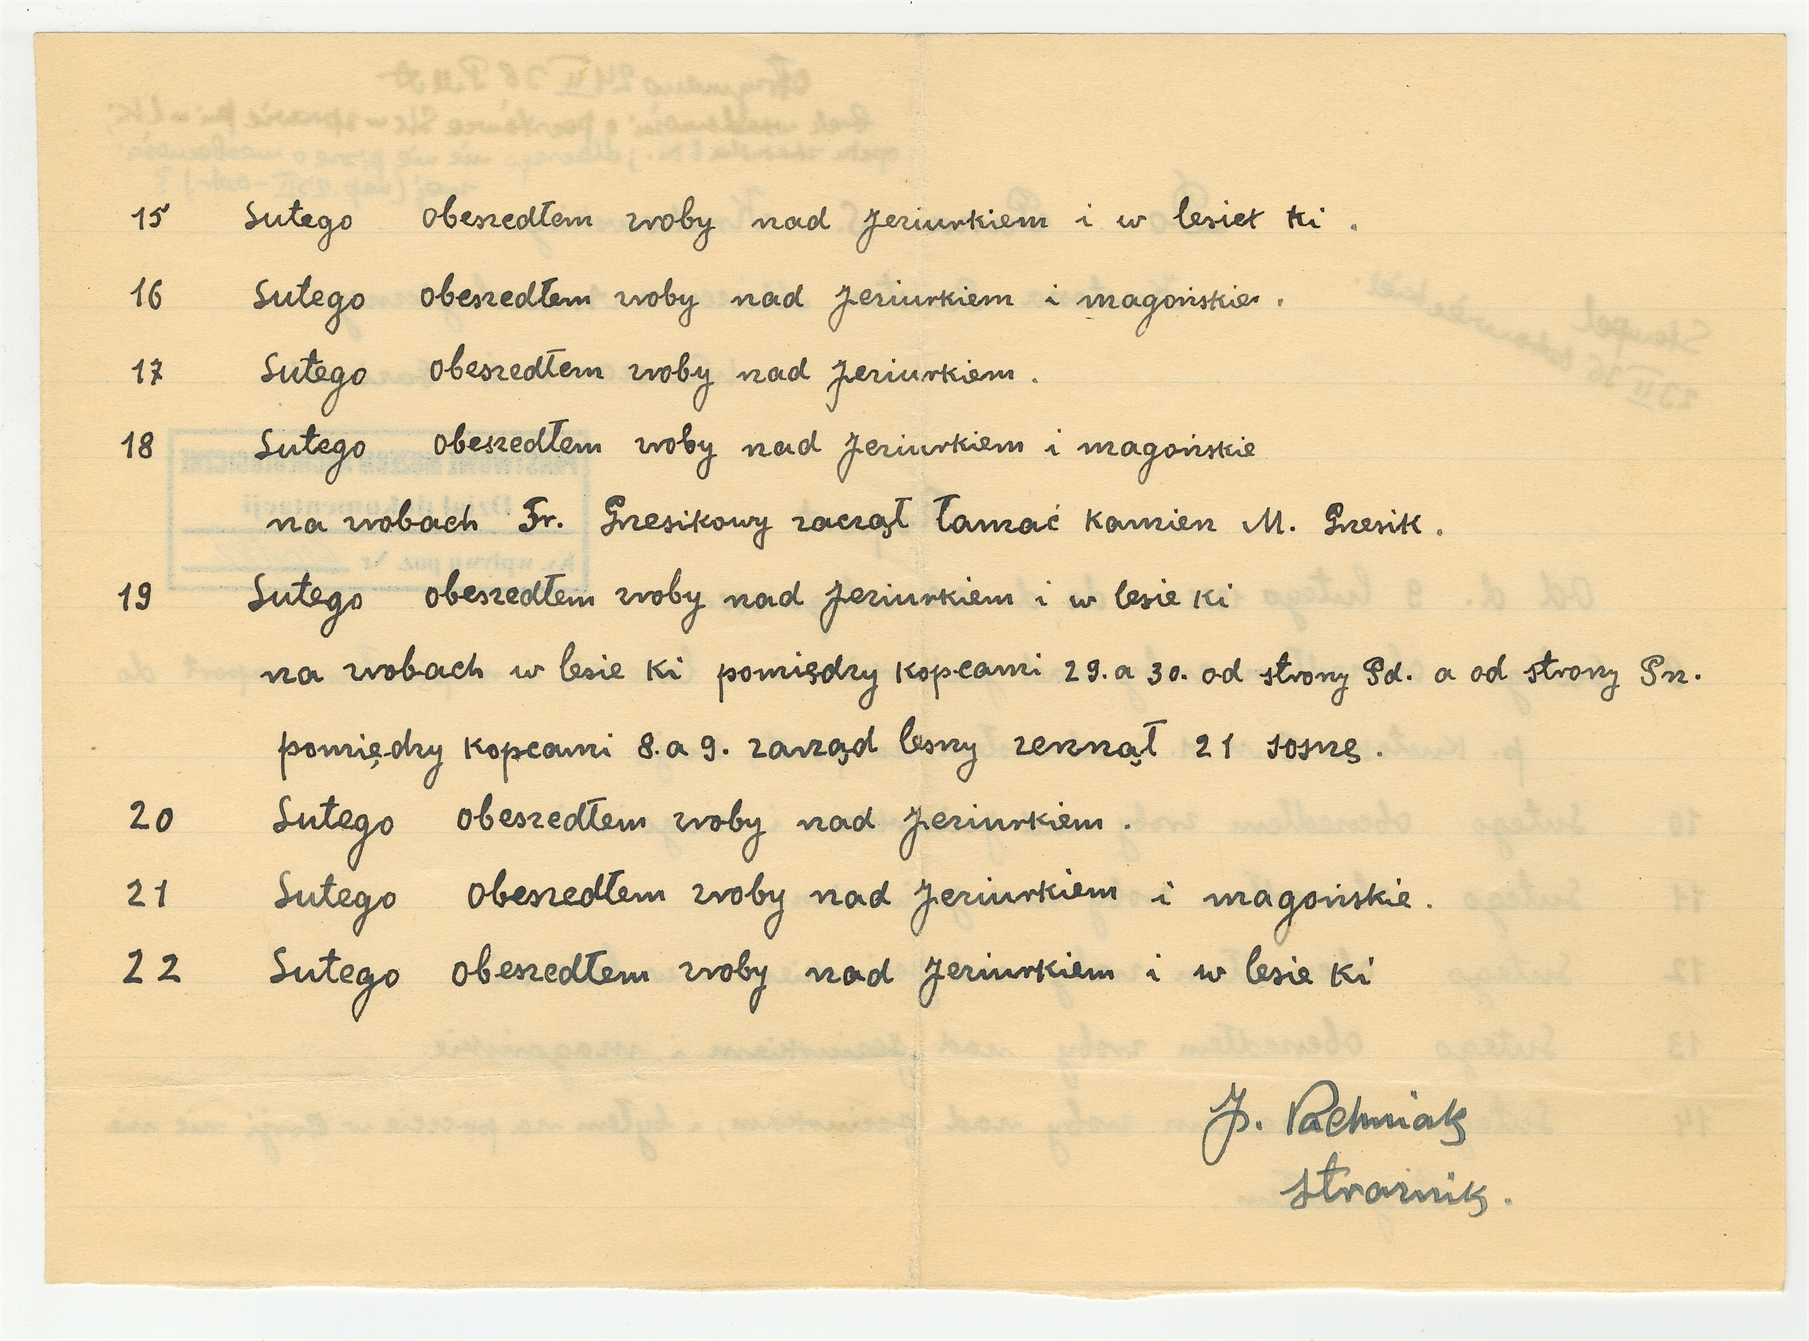 15 Lutego obeszedłem zroby nad Jeziurkiem i w lesiek ki.
16 Lutego obeszedłem zroby nad Jeziurkiem i magońskie.
17 Lutego obeszedłem zroby nad Jeziurkiem.
18 Lutego obeszedłem zroby nad Jeziurkiem i magońskie
na zrobach Fr. Gzesikowy zaczął łamać kamien M. Gzesik.
19 Lutego obeszedłem zroby nad Jeziurkiem i w lesie ki
na zrobach w lesie ki pomiędzy kopcami 29. a 30. od strony Pd. a od strony Pn.
pomiędzy kopcami 8. a 9. zarząd lesny zerznął 21 sosnę.
20 Lutego obeszedłem zroby nad Jeziurkiem.
21 Lutego obeszedłem zroby nad Jeziurkiem i magońskie.
22 Lutego obeszedłem zroby nad Jeziurkiem i w lesie ki
J. Pachniak
strażnik.